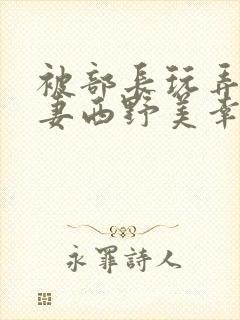 被部長玩弄
妻西野美幸
永罪詩人